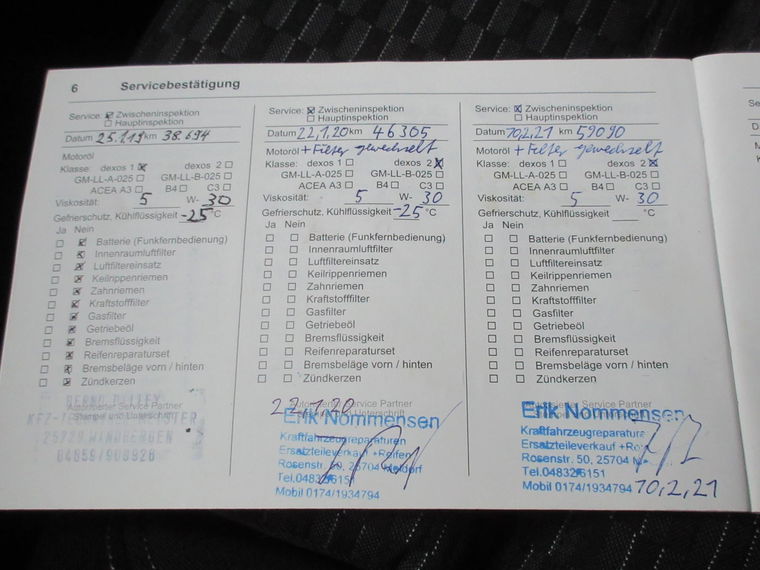 6 Servicebestätigung
Service: ☒ Zwischeninspektion
☐ Hauptinspektion
Datum 25.1.19 km 38.694
Motoröl
Klasse: dexos 1 ☒ dexos 2 ☐
GM-LL-A-025 ☐ GM-LL-B-025 ☐
ACEA A3 ☐ B4 ☐ C3 ☐
Viskosität: 5 W- 30
Gefrierschutz, Kühlflüssigkeit -25 °C
Ja Nein
☐ ☒ Batterie (Funkfernbedienung)
☐ ☒ Innenraumluftfilter
☐ ☒ Luftfiltereinsatz
☐ ☒ Keilrippenriemen
☐ ☒ Zahnriemen
☐ ☒ Kraftstofffilter
☐ ☒ Gasfilter
☐ ☒ Getriebeöl
☐ ☒ Bremsflüssigkeit
☐ ☒ Reifenreparaturset
☐ ☒ Bremsbeläge vorn / hinten
☐ ☒ Zündkerzen
Autorisierter Service Partner
Stempel und Unterschrift
25729 WINDBERGEN
Service: ☒ Zwischeninspektion
☐ Hauptinspektion
Datum 22,1.20 km 46305
Motoröl + Filter gewechselt
Klasse: dexos 1 ☐ dexos 2 ☒
GM-LL-A-025 ☐ GM-LL-B-025 ☐
ACEA A3 ☐ B4 ☐ C3 ☐
Viskosität: 5 W- 30
Gefrierschutz, Kühlflüssigkeit -25 °C
Ja Nein
☐ ☐ Batterie (Funkfernbedienung)
☐ ☐ Innenraumluftfilter
☐ ☐ Luftfiltereinsatz
☐ ☐ Keilrippenriemen
☐ ☐ Zahnriemen
☐ ☐ Kraftstofffilter
☐ ☐ Gasfilter
☐ ☐ Getriebeöl
☐ ☐ Bremsflüssigkeit
☐ ☐ Reifenreparaturset
☐ ☐ Bremsbeläge vorn / hinten
☐ ☐ Zündkerzen
Autorisierter Service Partner
22,1.20
Erik Nommensen
Kraftfahrzeugreparaturen
Ersatzteileverkauf +Reifen
Rosenstr. 50, 25704 Meldorf
Tel.04832/6151
Mobil 0174/1934794
Service: ☒ Zwischeninspektion
☐ Hauptinspektion
Datum 10,2,21 km 59090
Motoröl + Filter gewechselt
Klasse: dexos 1 ☐ dexos 2 ☒
GM-LL-A-025 ☐ GM-LL-B-025 ☐
ACEA A3 ☐ B4 ☐ C3 ☐
Viskosität: 5 W- 30
Gefrierschutz, Kühlflüssigkeit °C
Ja Nein
☐ ☐ Batterie (Funkfernbedienung)
☐ ☐ Innenraumluftfilter
☐ ☐ Luftfiltereinsatz
☐ ☐ Keilrippenriemen
☐ ☐ Zahnriemen
☐ ☐ Kraftstofffilter
☐ ☐ Gasfilter
☐ ☐ Getriebeöl
☐ ☐ Bremsflüssigkeit
☐ ☐ Reifenreparaturset
☐ ☐ Bremsbeläge vorn / hinten
☐ ☐ Zündkerzen
Autorisierter Service Partner
Erik Nommensen
Kraftfahrzeugreparature
Ersatzteileverkauf +Re
Rosenstr. 50, 25704
Tel.04832/6151
Mobil 0174/1934794 10,2,21